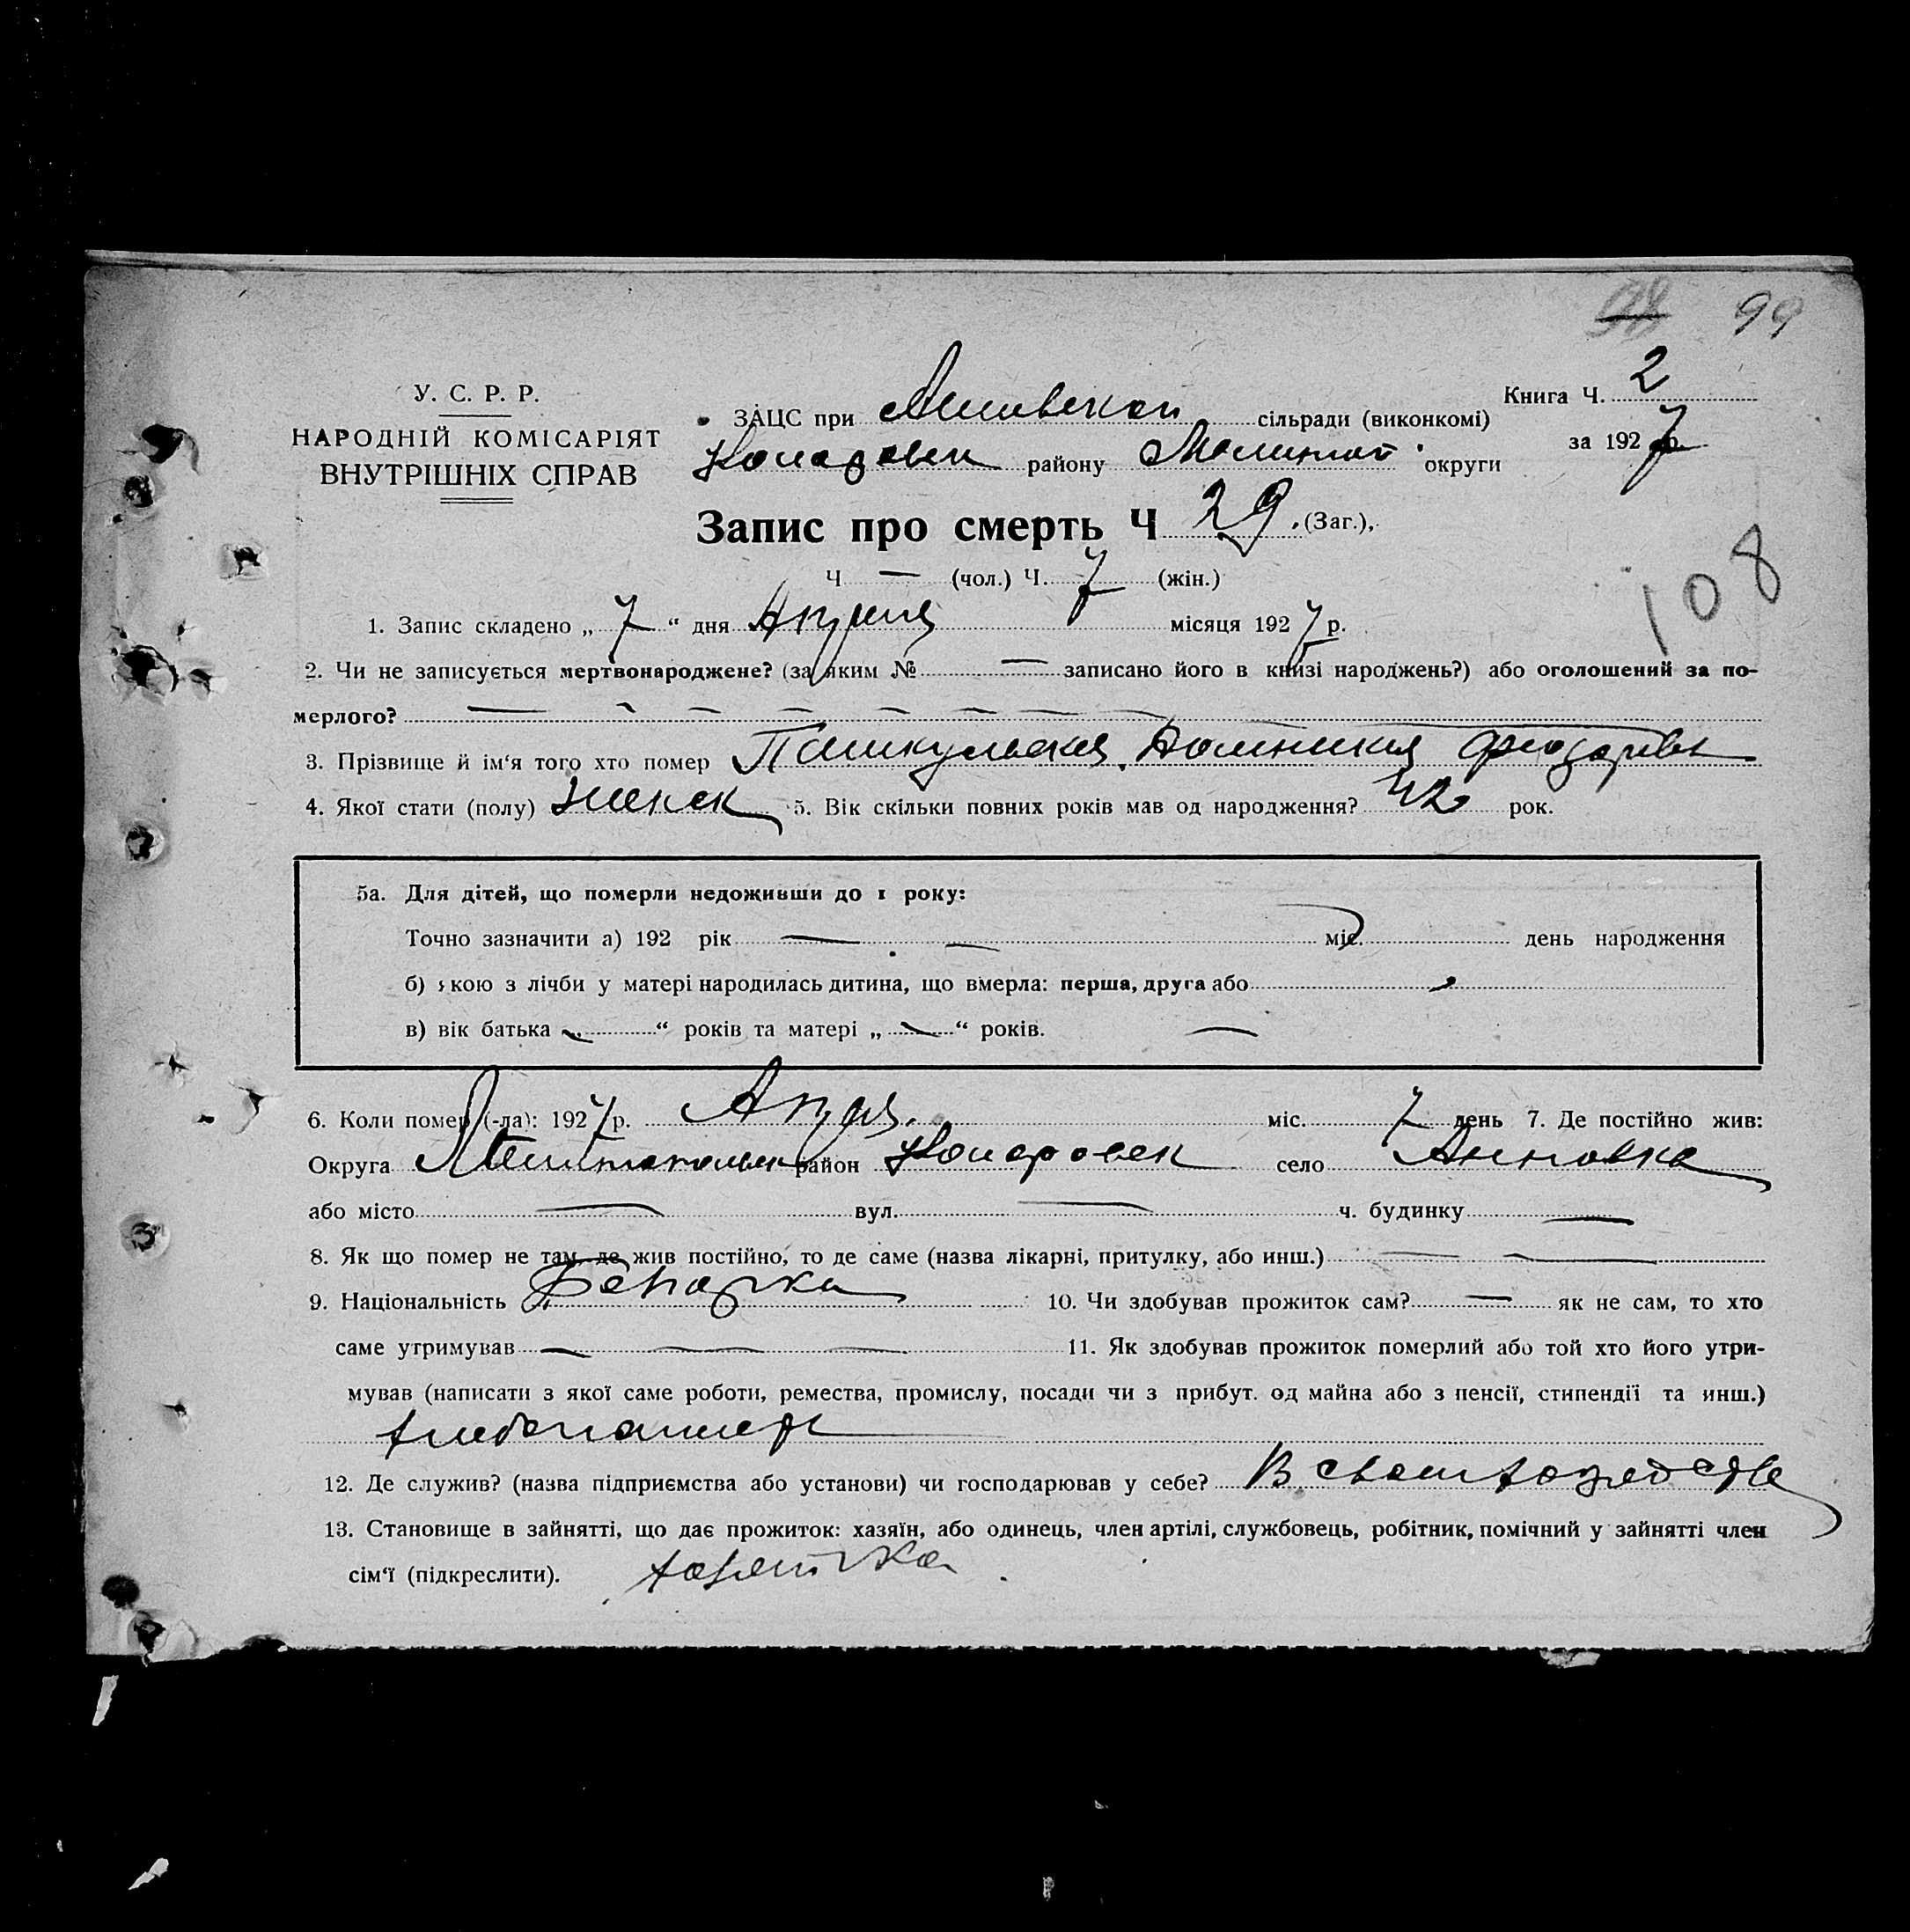 99
У. С. Р. Р.
НАРОДНІЙ КОМІСАРІЯТ
ВНУТРІШНІХ СПРАВ
Книга Ч. 2
за 1927 р.
ЗАЦС при сільради (виконкомі)
району округи
Запис про смерть Ч 29. (Заг.),
Ч — (чол.) Ч. 7 (жін.)
108
1. Запис складено „ 7 “ дня Апреля місяця 1927 р.
2. Чи не записується мертвонароджене? (за яким № — записано його в книзі народжень?) або оголошений за по-
мерлого? — — — — — — —
3. Прізвище й ім‘я того хто помер
4. Якої стати (полу) женск 5. Вік скільки повних років мав од народження? 42 рок.
5а. Для дітей, що померли недоживши до 1 року:
Точно зазначити а) 192 рік — — міс. день народження
б) якою з лічби у матері народилась дитина, що вмерла: перша, друга або
в) вік батька „ — “ років та матері „ — “ років. —
6. Коли помер (-ла): 1927 р. міс. 7 день 7. Де постійно жив:
Округа район село Анновка
або місто — вул. — ч. будинку —
8. Як що помер не там, де жив постійно, то де саме (назва лікарні, притулку, або инш.) — —
9. Національність 10. Чи здобував прожиток сам? — як не сам, то хто
саме утримував — — — 11. Як здобував прожиток померлий або той хто його утри-
мував (написати з якої саме роботи, ремества, промислу, посади чи з прибут. од майна або з пенсії, стипендії та инш.)
12. Де служив? (назва підприємства або установи) чи господарював у себе? В своем
13. Становище в зайнятті, що дає прожиток: хазяїн, або одинець, член артілі, службовець, робітник, помічний у зайнятті член
сім‘ї (підкреслити).